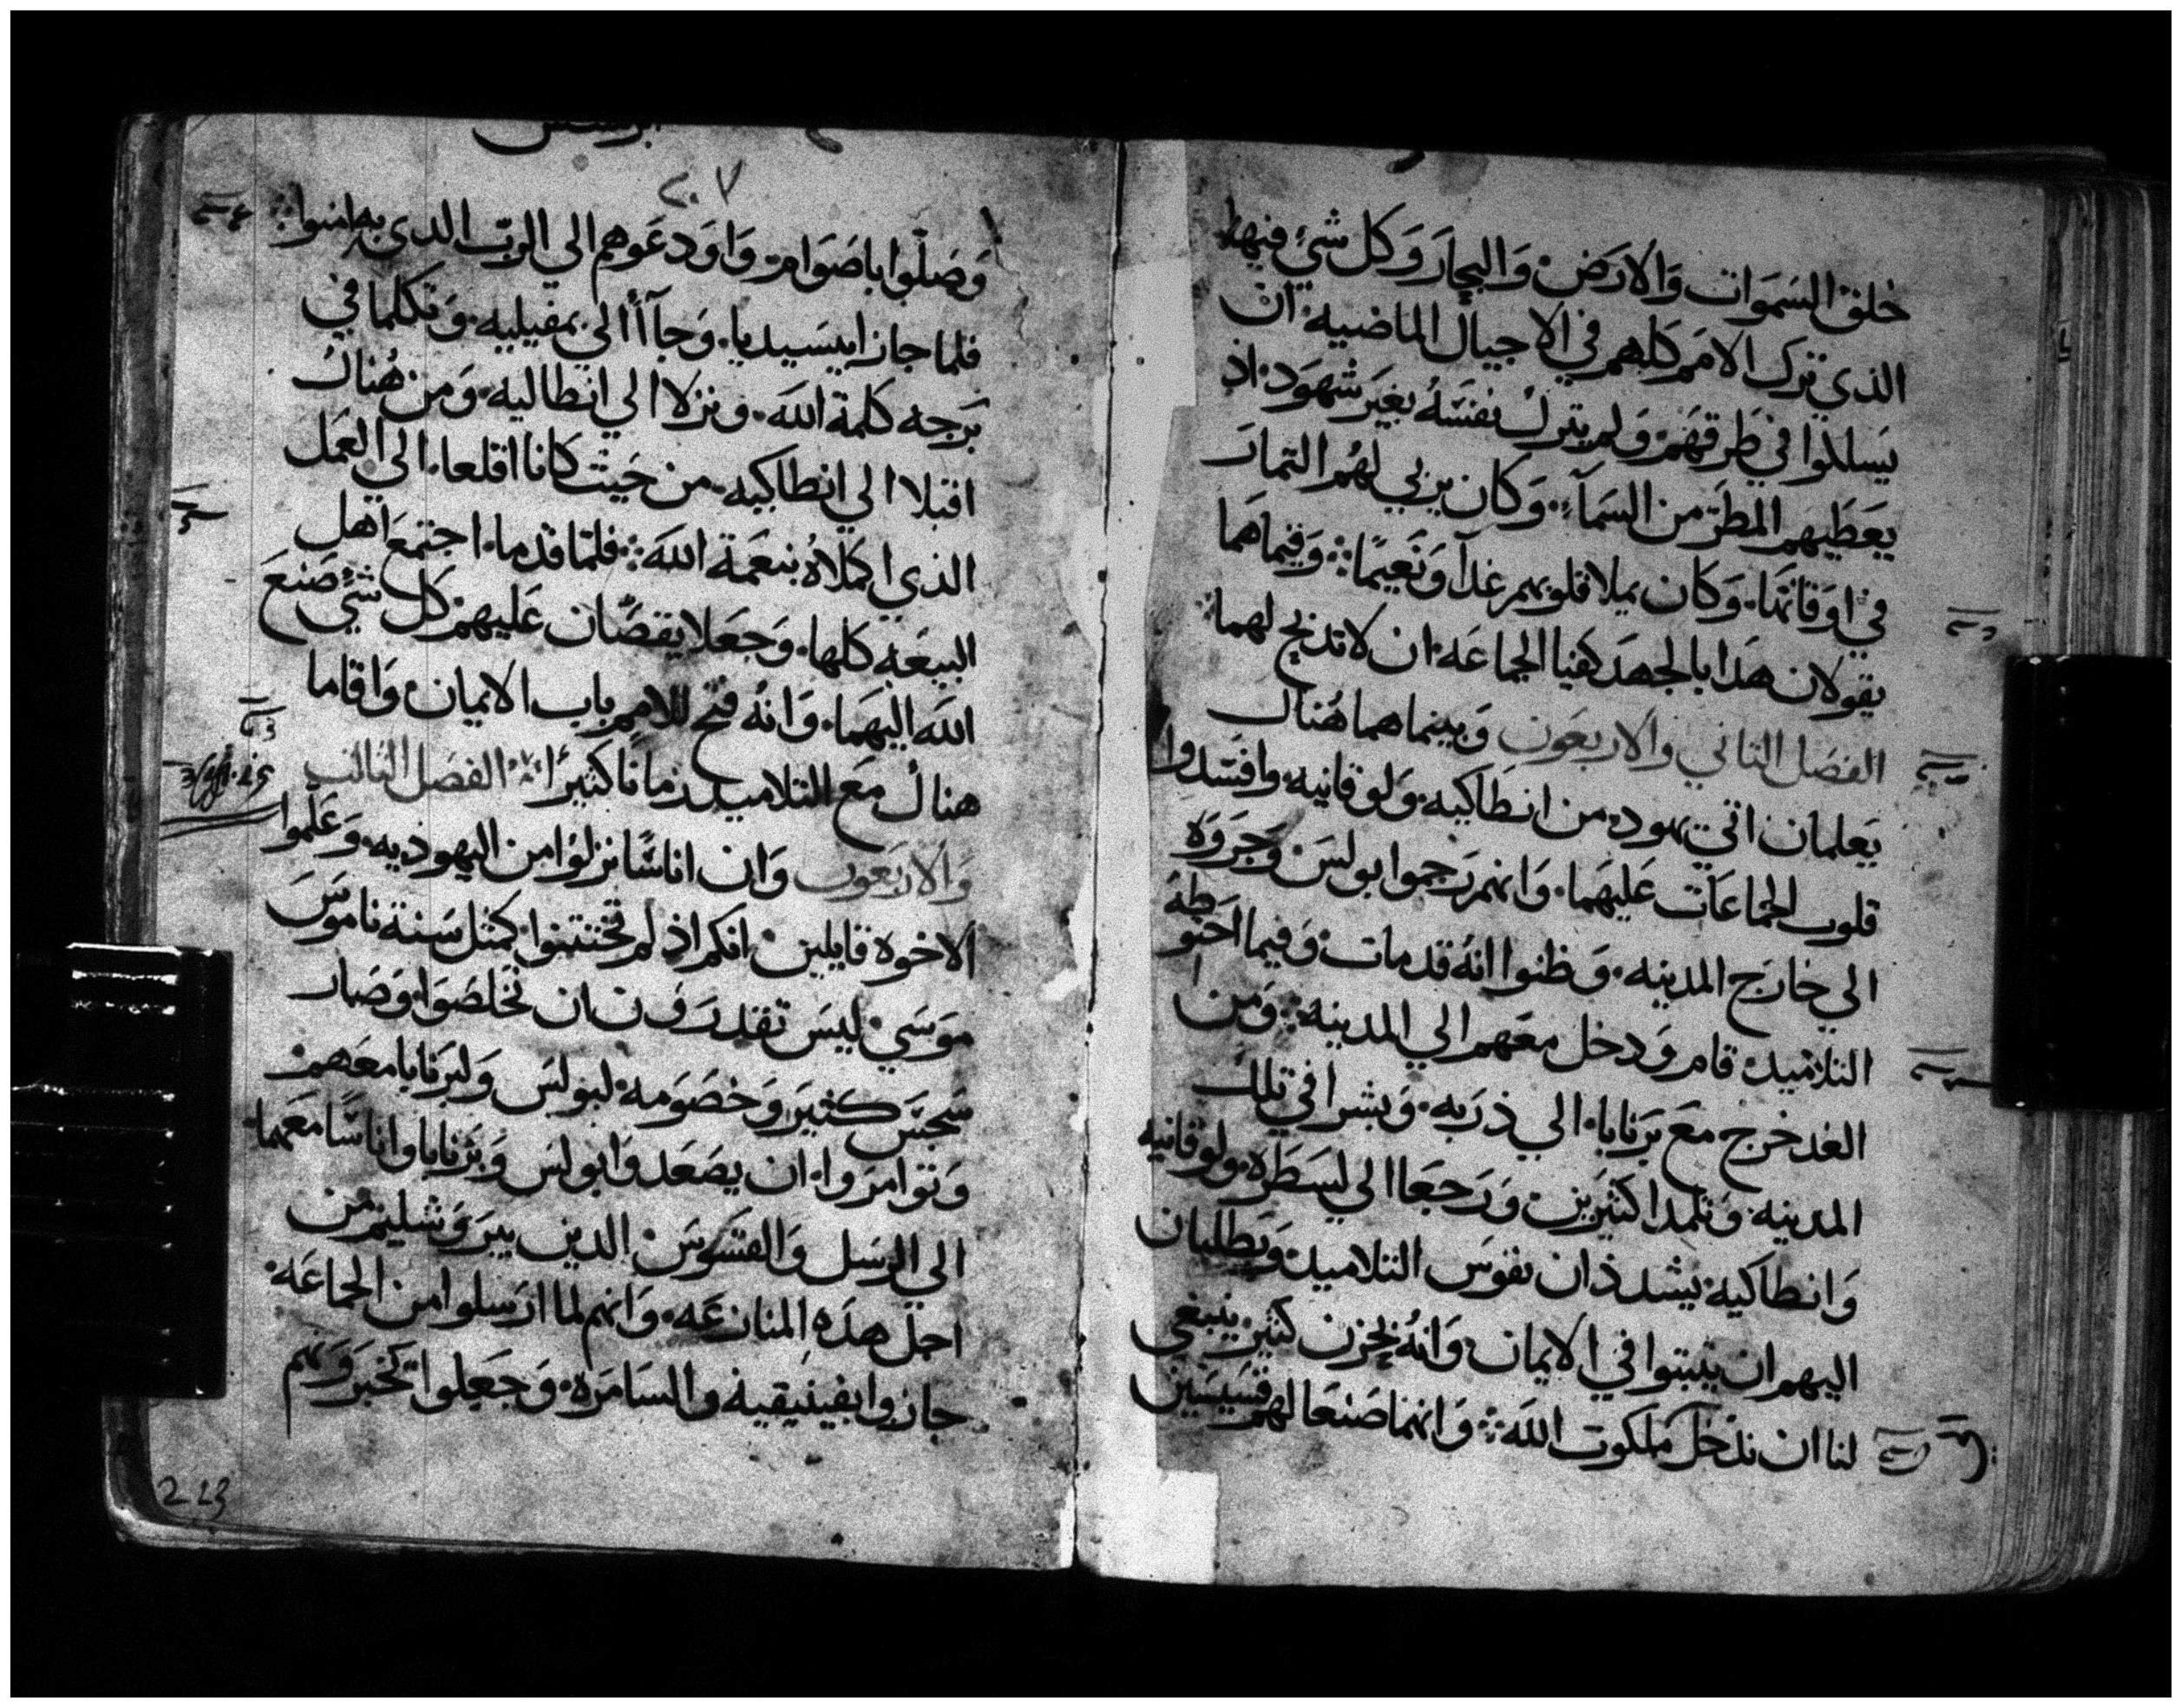 خلق السموات والارض والبحار وكل شيء فيها
الذي ترك الامم كلهم في الاجيال الماضيه ان
يسلكوا في طرقهم ولم يترك نفسه بغير شهود اذ
يعطيهم المطر من السمآء وكان يربي لهم الثمار
في اوقاتها وكان يملا قلوبهم غدآ ونعيمًا وفيما هما
يقولان هذا بالجهد كفيا الجماعه ان لا تدبح لهما
الفصل الثاني والاربعون وبينما هما هناك
يعلمان اتي يهود من انطاكيه ولوقانيه وافسدوا
قلوب الجماعات عليهما وانهم رجموا بولس وجروه
الي خارج المدينه وظنوا انه قد مات وفيما احتوطه
التلاميد قام ودخل معهم الي المدينه ومن
الغد خرج مع برنابا الي ذربه وبشرا في تلك
المدينه وتلمدا كثيرين ورجعا الي لسطره ولوقانيه
وانطاكيه يشددان نفوس التلاميد ويطلبان
اليهم ان يتبتوا في الايمان وانه بحزن كثير ينبغي
لنا ان ندخل ملكوت الله وانهما صنعا لهم قسيسين
٢٠٧
وصلوا باصوام واودعوهم الي الرب الدي به امنوا
فلما جازا بيسيديا وجآأ الي بمفيليه وتكلما في
برجه كلمة الله ونزلا الي انطاليه ومن هناك
اقبلا الي انطاكيه من حيث كانا اقلعا الي العمل
الذي اكملاه بنعمة الله فلما قدما اجتمع اهل
البيعه كلها وجعلا يقصان عليهم كل شيء صنع
الله اليهما وانه فتح للامم باب الايمان واقاما
هناك مع التلاميد زمانًا كثيرًا الفصل الثالث
والاربعون وان اناسًا نزلوا من اليهوديه وعلموا
الاخوه قايلين انكم اذ لم تختتنوا كمثل سنة ناموس
موسي ليس تقدرون ان تخلصوا وصار
سجس كثير وخصومه لبولس ولبرنابا معهم
وتوامروا ان يصعدوا بولس وبرنابا واناسًا معهما
الي الرسل والقسوس الدين بيروشليم من
اجل هذه المنازعه وانهم لما ارسلوا من الجماعه
جازوا بفينيقيه والسامره وجعلوا تخبرونهم
213